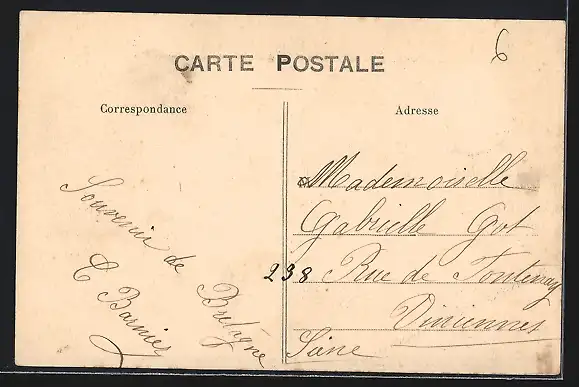 6
CARTE POSTALE
Correspondance
Adresse
Souvenir de Bretagne
C Barnier
Mademoiselle
Gabrielle Got
238 Rue de Fontenay
Vincennes
Seine